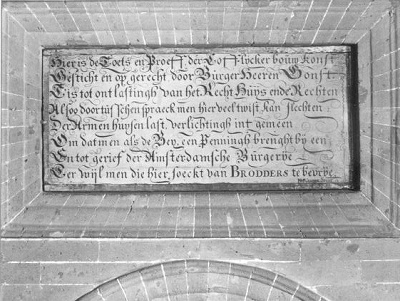 Hier is de Toets en Proeff der Loflycker bouw Konst
Gesticht en op gerecht door Burger Heeren Gonst
Tis tot ontlastingh van het Recht Huys ende Rechten
Alsoo door tusschenspraeck men hier veel twist kan slechten
Der Armen huysen last verlichtingh int gemeen
Om dat men als de Bey een Penningh brenght by een
En tot gerief der Amsterdamsche Burgerye
Ter wijl men die hier soeckt van BRODDERS te bevrye